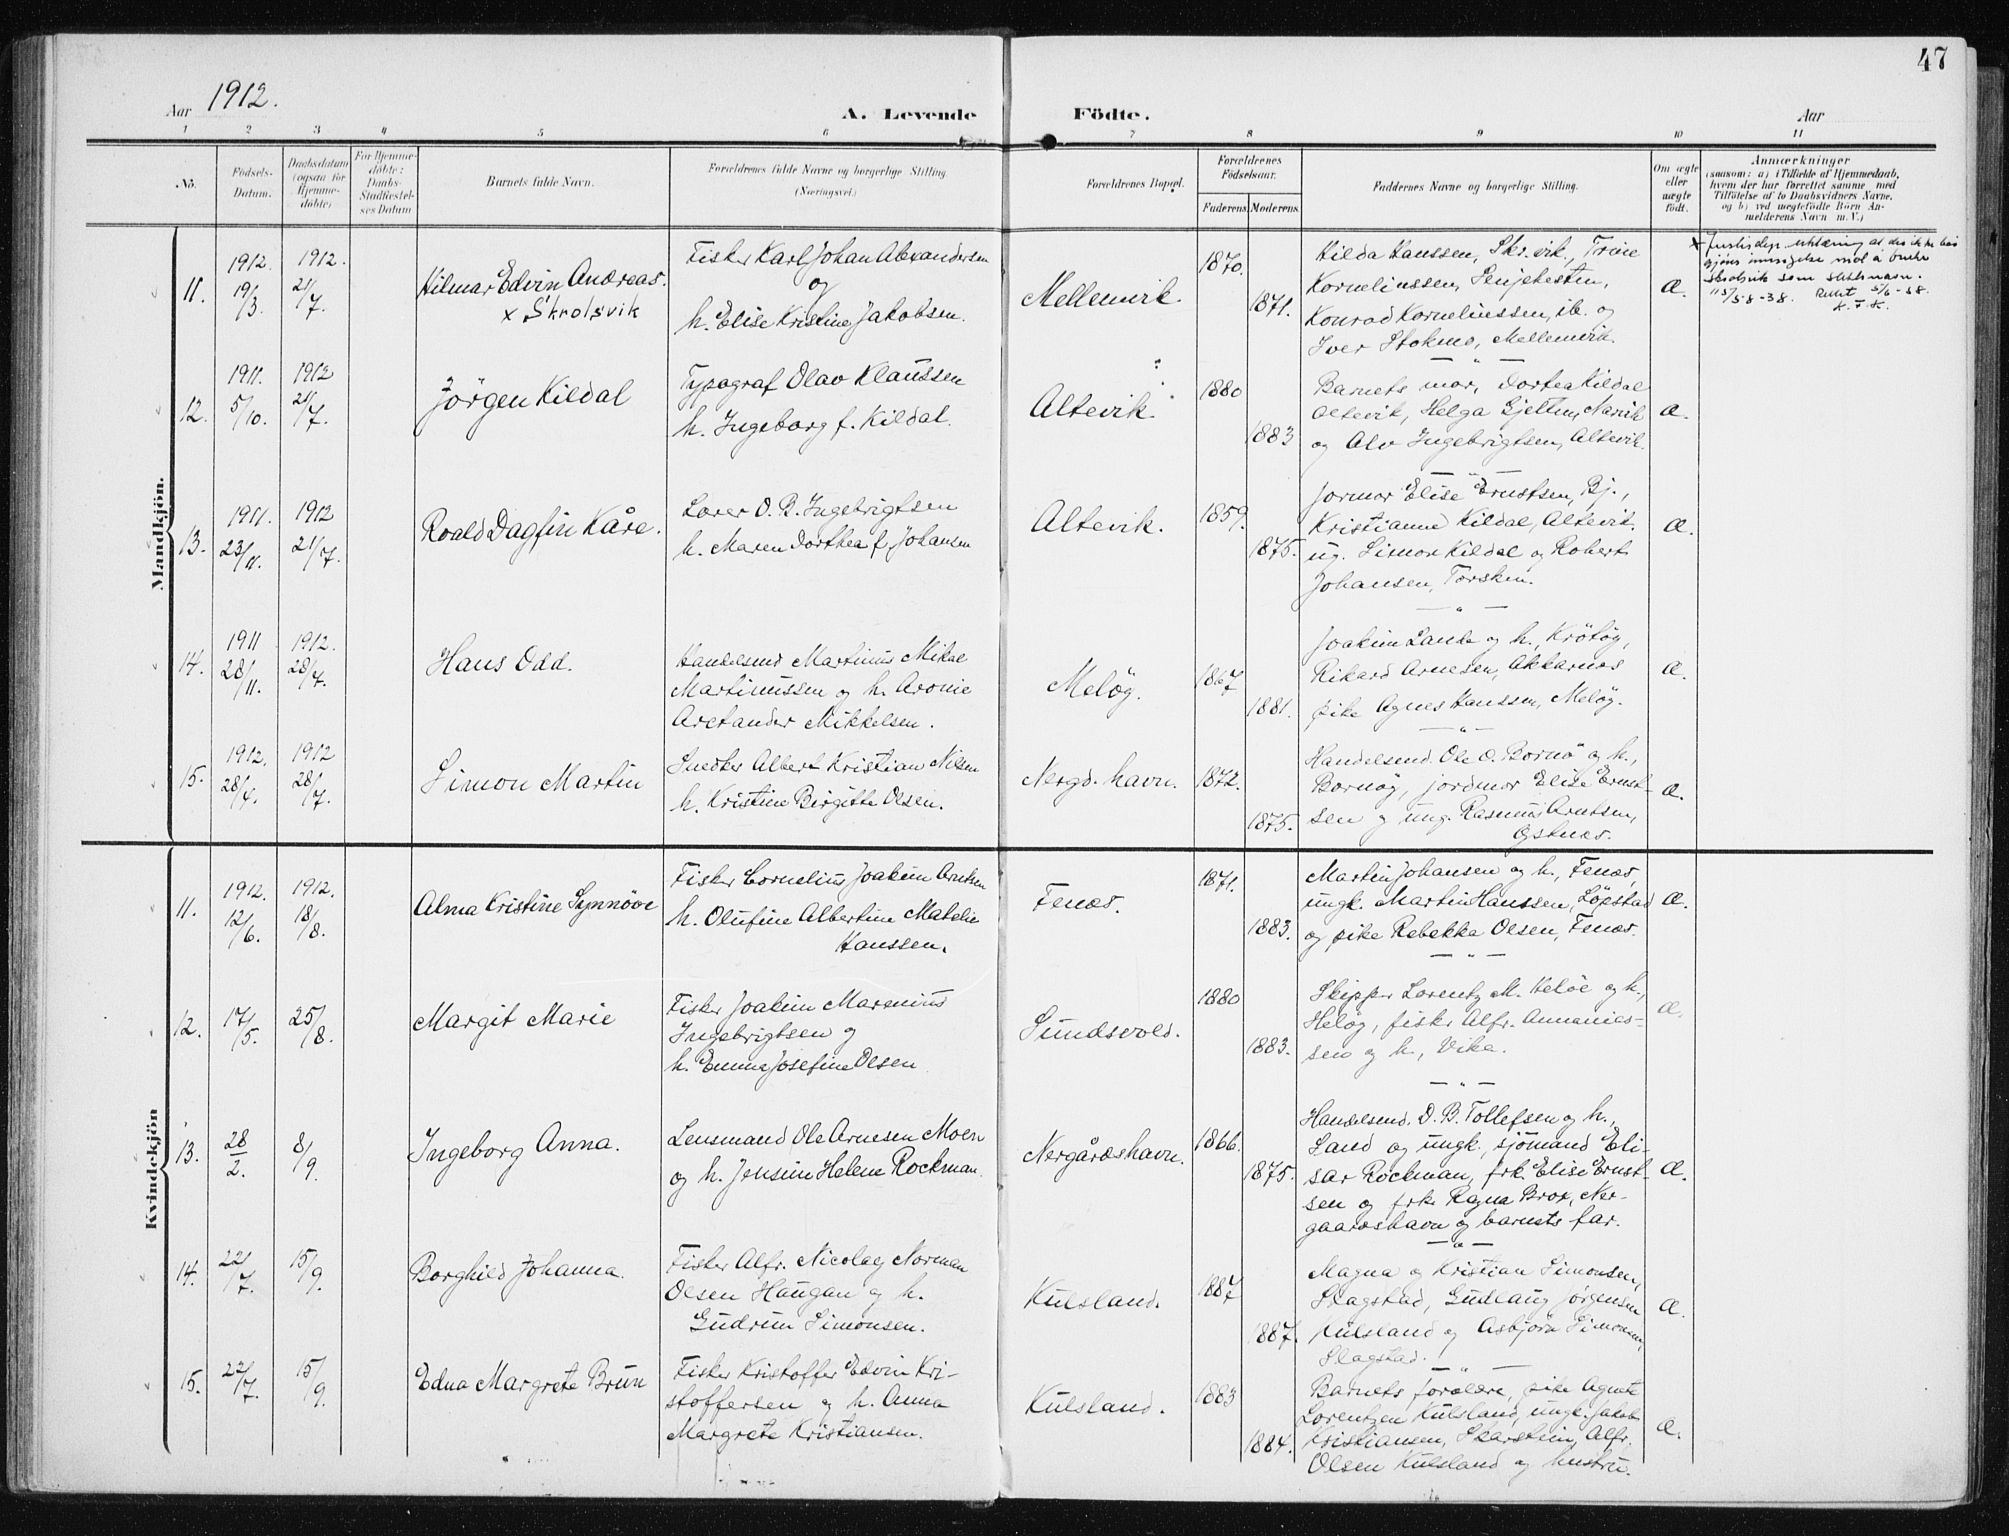 47
Aar 1912.
A. Levende Födte.
Aar
1 2 3 4 5 6 7 8 9 10 11
No.
Födsels-Datum.
Daabsdatum (ogsaa for Hjemme-döbte)
For Hjemme-döbte: Daabs-Stadfæstel-ses Datum
Barnets fulde Navn.
Forældrenes fulde Navne og borgerlige Stilling. (Næringsvei.)
Forældrenes Bopæl.
Forældrenes Födselsaar.
Faderens. Moderens.
Faddernes Navne og borgerlige Stilling.
Om ægte eller uægte födt.
Anmærkninger
(saasom: a) i Tilfælde af Hjemmedaab,
hvem der har forrettet samme med
Tilföielse af to Daabsvidners Navne,
og b) ved uægtefödte Börn An-
melderens Navn m. V.)
Mandkjön.
11. 1912. 19/3. 1912. 21/7.
Hilmar Edvin Andreas.
x Skrolsvik
Fisker Karl Johan Alexandersen
og
h. Elise Kristine Jakobsen.
Mellemvik.
1870. 1871.
Hilda Hanssen, Skr.vik, Trine
Kornelinssen, Senjehesten,
Konrad Kornelinssen, ib. og
Iver Stokmo, Mellemvik.
Æ.
12. 1911. 5/10. 1912 21/7.
Jörgen Kildal
Typograf Olav Klaussen
h. Ingeborg f. Kildal.
Altevik.
1880 1883
Barnets mor, Dortea Kildal
Altevik, Helga Gjetten, Narvik
og Alv Ingebrigtsen, Altevik.
Æ.
13. 1911. 23/11. 1912 21/7.
Roald Dagfin Kåre.
Lærer O. B. Ingebrigtsen
h. Maren Dorthea f. Johansen
Altevik.
1859. 1875.
Jormor Elise Ernstsen, Bj.,
Kristianne Kildal, Altevik.
ug. Simon Kildal og Robert
Johansen, Torsken.
Æ.
14. 1911 28/11. 1912. 28/7.
Hans Odd.
Handelsmd Martinus Mikal
Martinussen og h. Aronie
Aretander Mikkelsen.
Meløy.
1867 1881.
Joakim Lande og h., Krötöy,
Rikard Arnesen, Akkarnes
pike Agnes Hanssen, Meløy.
Æ.
15. 1912. 28/4. 1912 28/7.
Simon Martin
Snedker Albert Kristian Nilsen
h. Kristine Birgitte Olsen.
Nergd. havn.
1872. 1875.
Handelsmd. Ole O. Bornö og h.,
Bornøy, jordmor Elise Ernst-
sen og ung. Rasmus Arntsen,
Æ.
Kvindekjön
11. 1912. 12/6. 1912. 18/8.
Alma Kristine Synnöve
Fisker Cornelius Joakim Arntsen
h. Olufine Albertine Matelie
Hanssen.
Fenes.
1871. 1883.
Martin Johansen og h., Fenes,
ungk. Martin Hanssen, Löpstad
og pike Rebekka Olsen, Fenes.
Æ.
12. 17/5. 25/8.
Margit Marie
Fisker Joakim Marenius
Ingebrigtsen og
h. Emma Josefine Olsen
Sundsvold.
1880 1883.
Skipper Lorentz M. Heløe og h.,
Heløy, fisker Alfr. Annanies-
sen og h., Vika.
Æ.
13. 28/2. 8/9.
Ingeborg Anna.
Lensmand Ole Arnesen Moen
og h. Jensine Helene Rockman.
Nergårdshavn.
1866. 1875.
Handelsmd. O. B. Tollefsen og h.,
Land og ungk. sjömand Eli-
sar Rockman, frk. Elise Ernst-
sen og frk. Ragna Brox, Ner-
gaardshavn og barnets far.
Æ.
14. 22/7. 15/9.
Borghild Johanna.
Fisker Alfr. Nicolay Norman
Olsen Haugan og h.
Gudrun Simonsen.
Kulsland.
1887 1887.
Magna og Kristian Simonsen,
Slagstad, Gudlaug Jörgensen
Kulsland og Asbjörn Simonsen,
Slagstad.
Æ.
15. 22/7. 15/9.
Edna Margrete Brun
Fisker Kristoffer Edvin Kri-
stoffersen og h. Anna
Margrete Kristiansen.
Kulsland.
1883 1884.
Barnets forældre, pike Agnete
Lorentzen Kulsland, ungk. Jakob
Kristiansen, Skarstein, Alfr.
Olsen Kulsland og hustru.
Æ.